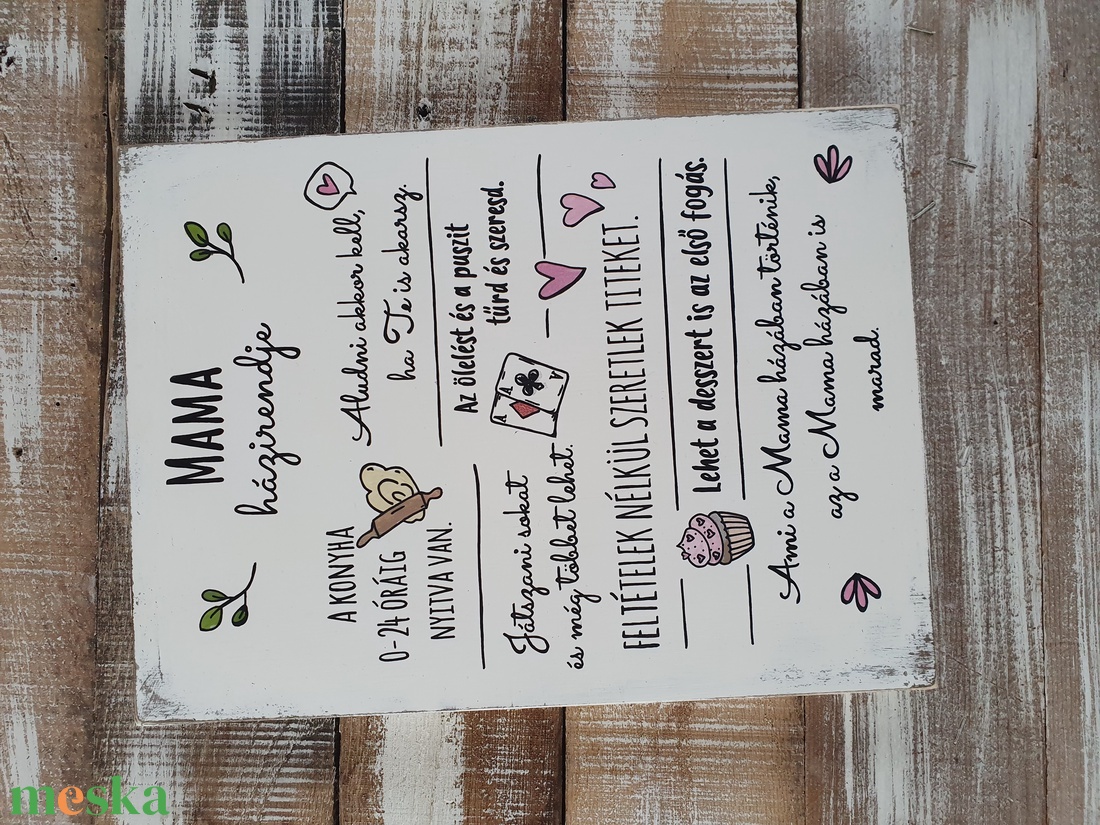 MAMA
házirendje
A KONYHA
0-24 ÓRÁIG
NYITVA VAN.
Aludni akkor kell,
ha Te is akarsz.
Az ölelést és a puszit
tűrd és szeresd.
Játszani sokat
és még többet lehet.
A
A
A
FELTÉTELEK NÉLKÜL SZERETLEK TITEKET.
Lehet a desszert is az első fogás.
Ami a Mama házában történik,
az a Mama házában is
marad.
meska